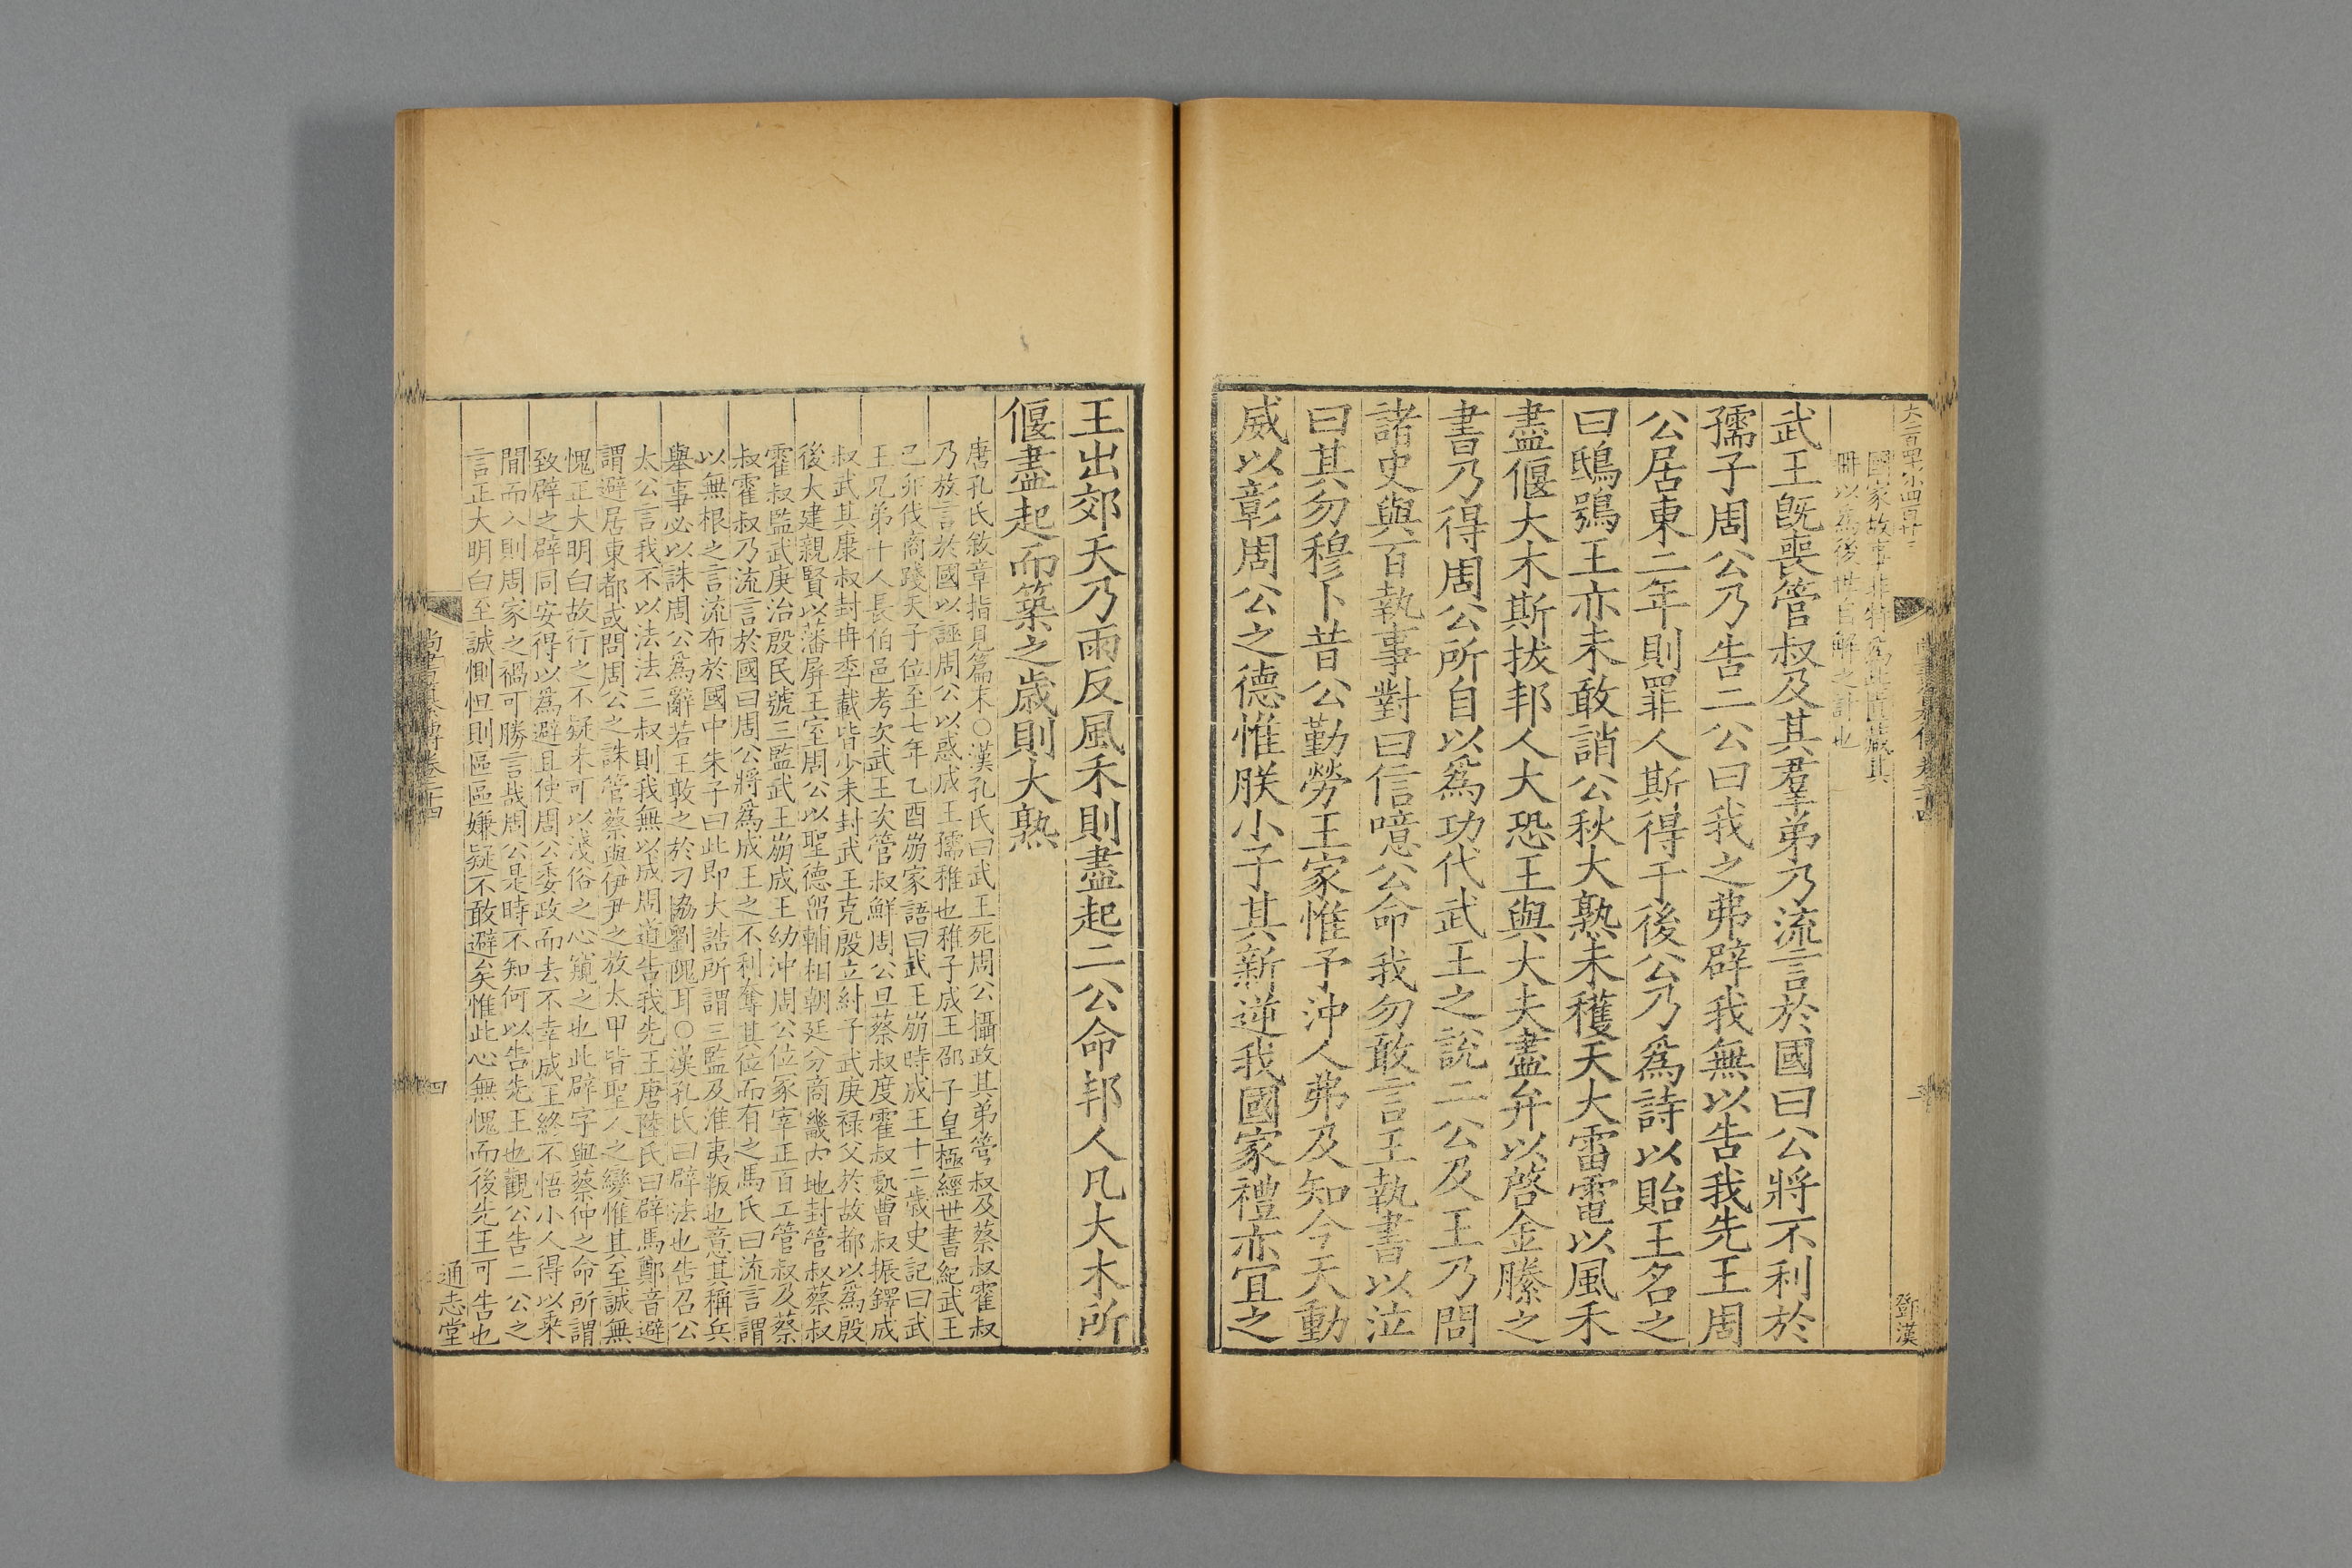 國家故事非特爲此匱藏其
冊以爲後世自解之計也
武王旣喪管叔及其羣弟乃流言於國曰公將不利於
孺子周公乃告二公曰我之弗辟我無以告我先王周
公居東二年則罪人斯得于後公乃爲詩以貽王名之
曰鴟鴞王亦未敢誚公秋大熟未穫天大雷電以風禾
盡偃大木斯拔邦人大恐王與大夫盡弁以啓金縢之
書乃得周公所自以爲功代武王之說二公及王乃問
諸史與百執事對曰信噫公命我勿敢言王執書以泣
曰其勿穆卜昔公勤勞王家惟予沖人弗及知今天動
威以彰周公之德惟朕小子其新逆我國家禮亦宜之
鄧漢
王出郊天乃雨反風禾則盡起二公命邦人凡大木所
偃盡起而築之歲則大熟
唐孔氏敘章指見篇末○漢孔氏曰武王死周公攝政其弟管叔及蔡叔霍叔
乃放言於國以誣周公以惑成王孺稚也稚子成王邵子皇極經世書紀武王
己卯伐商踐天子位至七年乙酉崩家語曰武王崩時成王十二歲史記曰武
王兄弟十人長伯邑考次武王次管叔鮮周公旦蔡叔度霍叔處曹叔振鐸成
叔武其康叔封冉季載皆少未封武王克殷立紂子武庚祿父於故都以爲殷
後大建親賢以藩屏王室周公以聖德留輔相朝廷分商畿內地封管叔蔡叔
霍叔監武庚治殷民號三監武王崩成王幼沖周公位冢宰正百工管叔及蔡
叔霍叔乃流言於國曰周公將爲成王之不利奪其位而有之馬氏曰流言謂
以無根之言流布於國中朱子曰此即大誥所謂三監及淮夷叛也意其稱兵
舉事必以誅周公爲辭若王敦之於刁協劉隗耳○漢孔氏曰辟法也告召公
太公言我不以法法三叔則我無以成周道告我先王唐陸氏曰辟馬鄭音避
謂避居東都或問周公之誅管蔡與伊尹之放太甲皆聖人之變惟其至誠無
愧正大明白故行之不疑未可以淺俗之心窺之也此辟字與蔡仲之命所謂
致辟之辟同安得以爲避且使周公委政而去不幸成王終不悟小人得以乘
間而入則周家之禍可勝言哉周公是時不知何以告先王也觀公告二公之
言正大明白至誠惻怛則區區嫌疑不敢避矣惟此心無愧而後先王可告也
四
通志堂